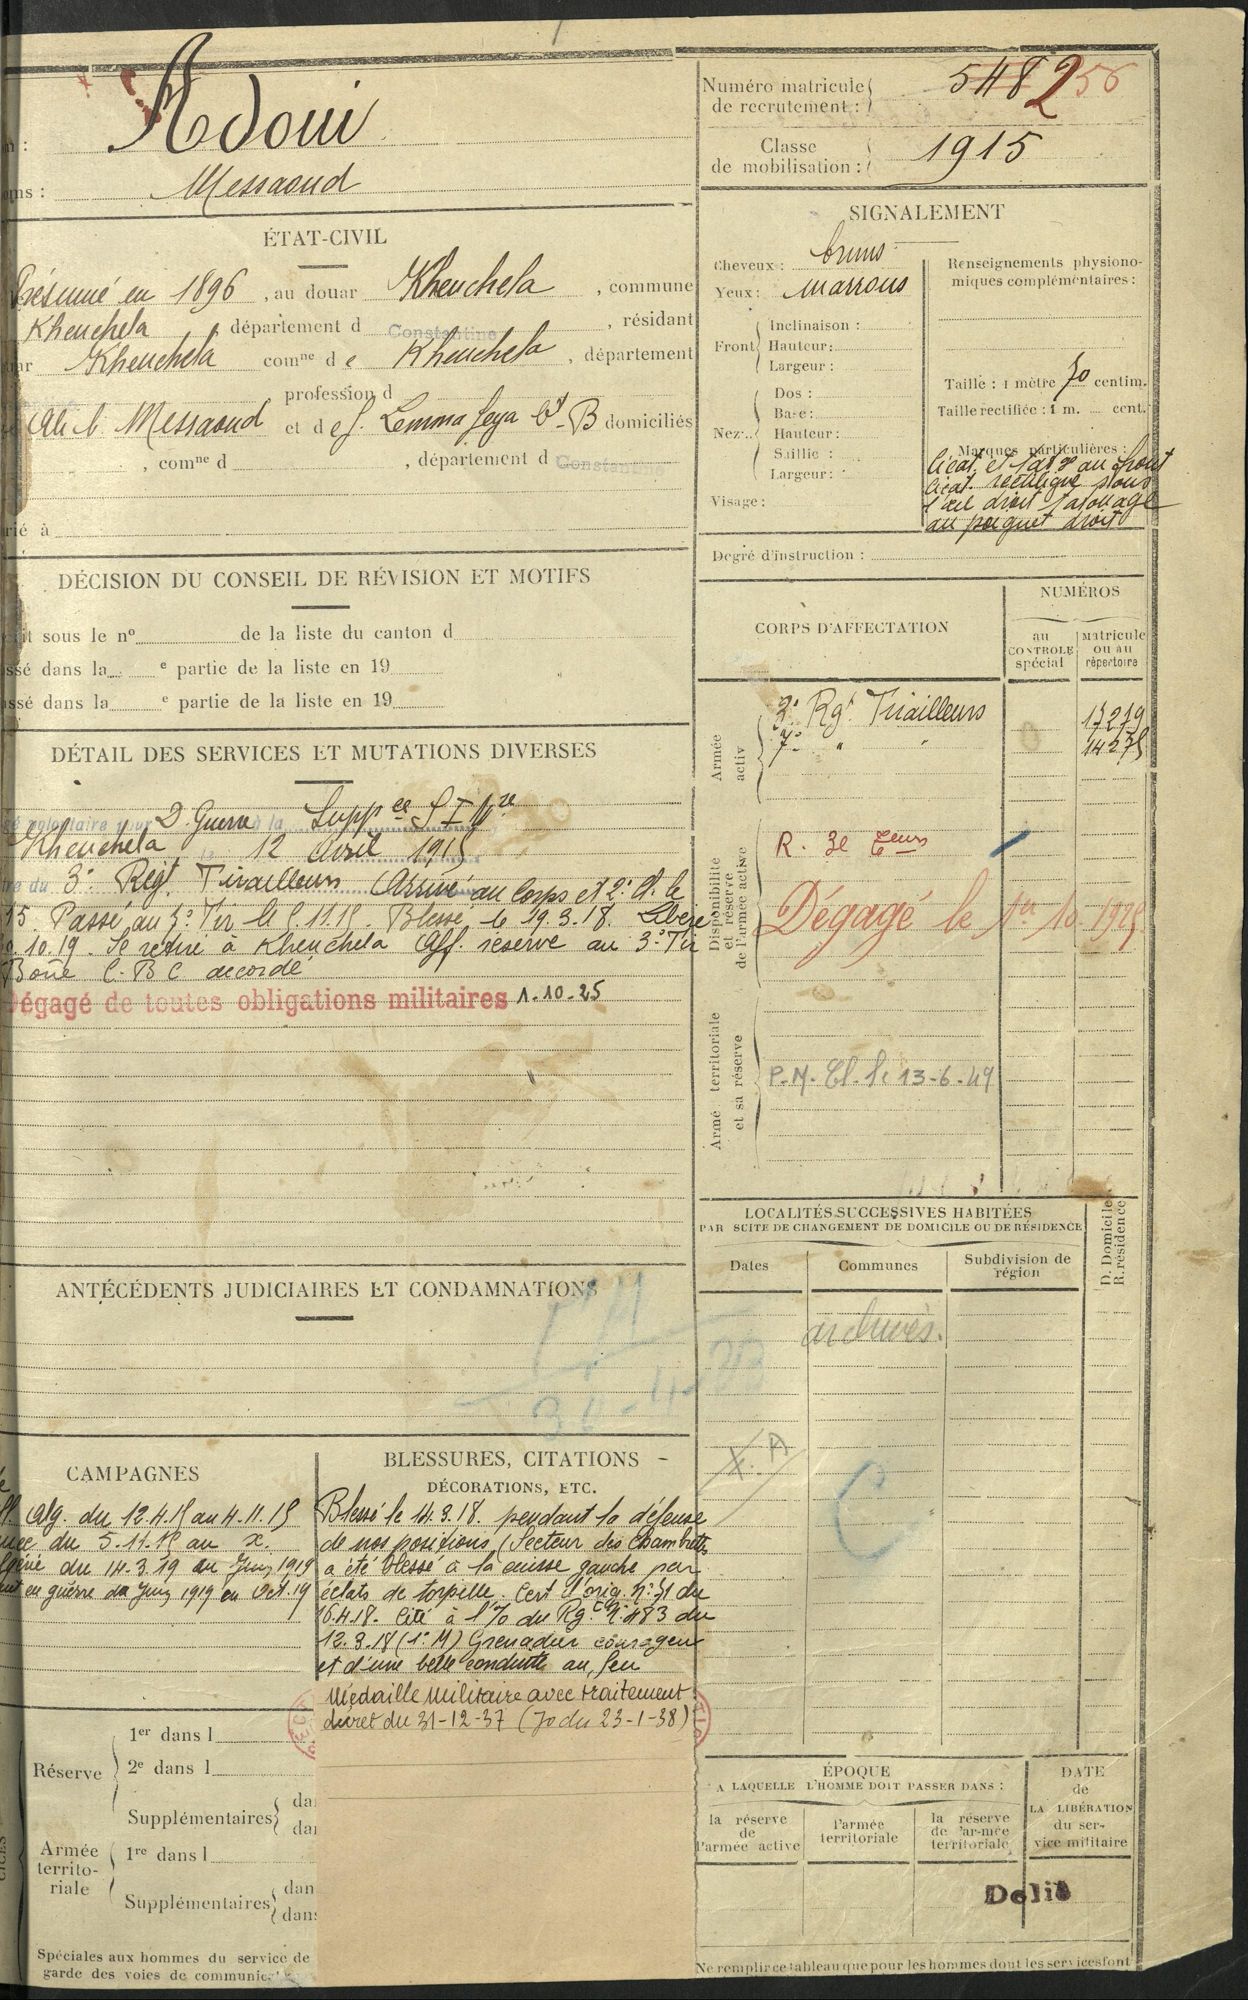 Adoui
Messaoud
ÉTAT-CIVIL
Présumé en 1896, au douar Khenchela, commune
Khenchela, département d Constantine, résidant
Khenchela comne de Khenchela, département
profession d
Ali b Messaoud et de f. Lemma Feya bt B domiciliés
, comne d , département d Constantine
rié à
DÉCISION DU CONSEIL DE RÉVISION ET MOTIFS
it sous le no de la liste du canton d
ssé dans la e partie de la liste en 19
ssé dans la e partie de la liste en 19
DÉTAIL DES SERVICES ET MUTATIONS DIVERSES
volontaire pour D. Guerre à la
Khenchela le 12 avril 1915
du 3e Régt Tirailleurs Arrivé au Corps et 2e Cl. le
15. Passé au 7e Tir le 5.11.15. Blessé le 19.3.18. Libéré
.10.19. Se retire à Khenchela Aff. réserve au 3e Tir
Bône C.B.C accordé
Dégagé de toutes obligations militaires 1.10.25
ANTÉCÉDENTS JUDICIAIRES ET CONDAMNATIONS
CAMPAGNES
Alg. du 12.4.15 au 4.11.15
du 5.11.15 au x.
du 14.3.19 au Juin 1919
en guerre du Juin 1919 au Oct. 19
BLESSURES, CITATIONS
DÉCORATIONS, ETC.
Blessé le 14.3.18. pendant la défense
de nos positions (Secteur des Chambrettes
a été blessé à la cuisse gauche par
éclats de torpille. Cert d'orig. No 51 du
16.4.18. Cité à l'O du Rgt No 483 du
12.3.18 (1e M) Grenadier courageux
et d'une belle conduite au feu
Médaille Militaire avec traitement
décret du 31-12-37 (Jo du 23-1-38)
1er dans l
Réserve 2e dans l
Supplémentaires
Armée territoriale 1re dans l
Supplémentaires
Spéciales aux hommes du service de
garde des voies de communic
Numéro matricule de recrutement : 548256
Classe de mobilisation : 1915
SIGNALEMENT
Cheveux : bruns
Yeux : marrons
Front Inclinaison :
Hauteur :
Largeur :
Nez Dos :
Base :
Hauteur :
Saillie :
Largeur :
Visage :
Renseignements physiono-
miques complémentaires :
Taille : 1 mètre 70 centim.
Taille rectifiée : 1 m. cent.
Marques particulières :
Cicat. et tatge au front
Cicat. rectiligne sous
l'œil droit tatouage
au poignet droit
Degré d'instruction :
CORPS D'AFFECTATION
NUMÉROS
au CONTROLE spécial
matricule ou au répertoire
Armée activ
3e Rgt Tirailleurs 17279
7e " " 14275
Disponibilité et réserve de l'armée active
R. 3e Teurs
Dégagé le 1er 10. 1925
Armé territoriale et sa réserve
P.M. 13-6-49
LOCALITÉS SUCCESSIVES HABITÉES
PAR SUITE DE CHANGEMENT DE DOMICILE OU DE RÉSIDENCE
D. Domicile
R. résidence
Dates
Communes
Subdivision de région
archives.
C
ÉPOQUE
A LAQUELLE L'HOMME DOIT PASSER DANS :
la réserve de l'armée active
l'armée territoriale
la réserve de l'armée territoriale
DATE de LA LIBÉRATION du ser-
vice militaire
Ne remplir ce tableau que pour les hommes dont les services font